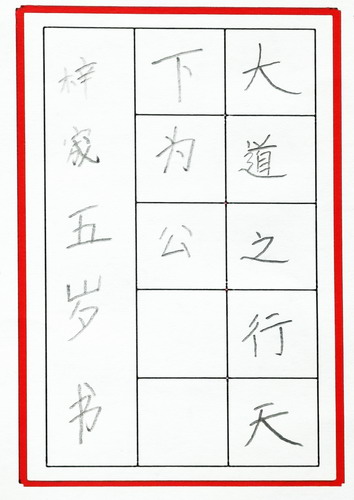 大道之行天
下为公
梓宬五岁书